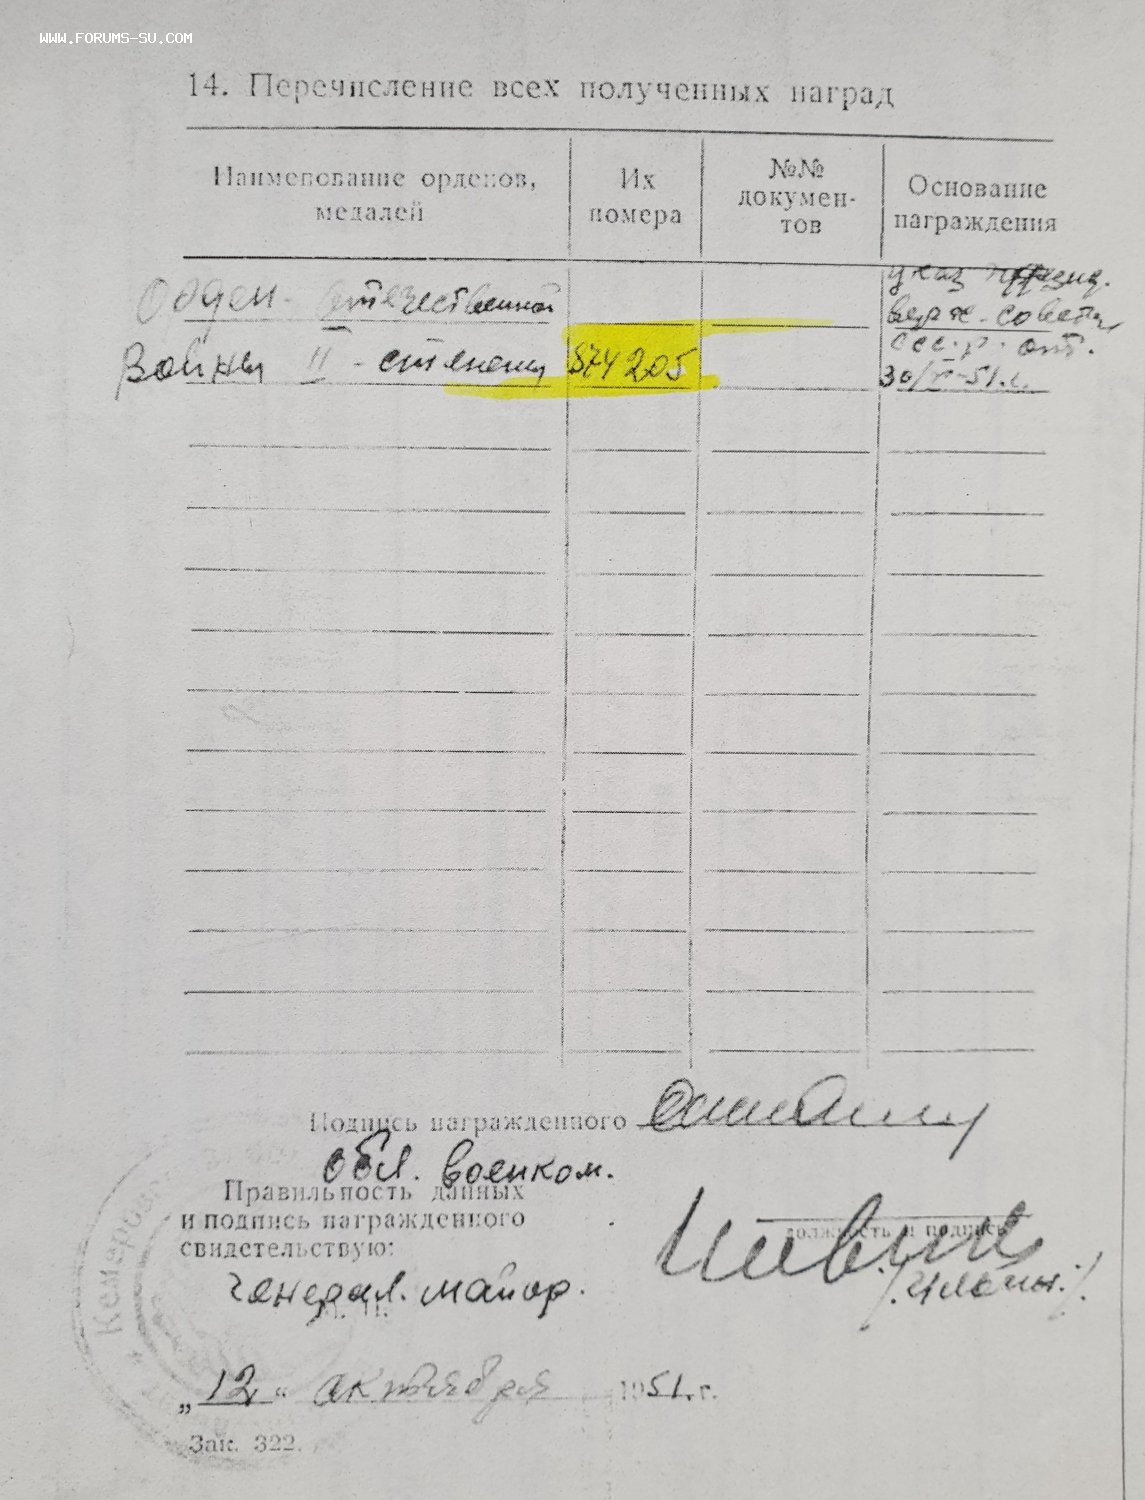 WWW.FORUMS-SU.COM
14. Перечисление всех полученных наград
Наименование орденов, медалей
Их номера
№№ документов
Основание награждения
Орден отечественной
Войны II - степени
574205
указ през.
верх. совета
ссср от.
30/V-51.г.
Подпись награжденного
обл. военком.
Правильность данных
и подпись награжденного
свидетельствую:
должность и подпись
генерал. майор.
М. П.
„12“ октября 1951. г.
Зак. 322.
Кемеровс